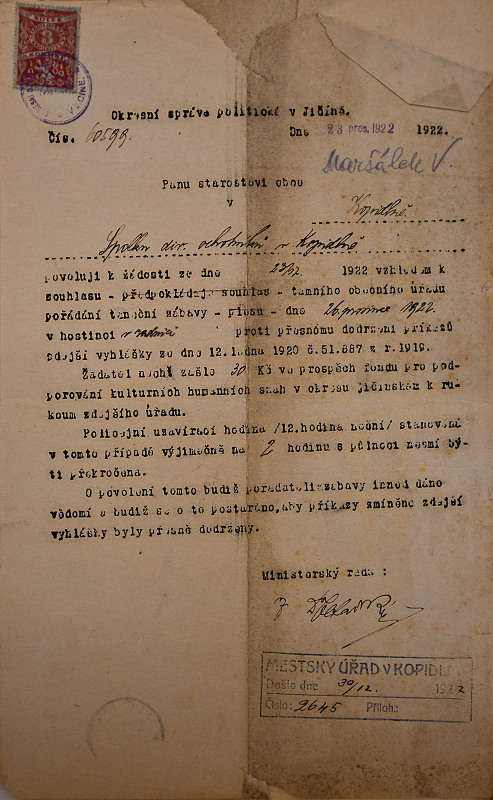 KOLEK
3
JIČÍNĚ.
Okresní správa politická v Jičíně.
Čís. 60599. Dne 23 pros. 1922 1922.
Maršálek V.
Panu starostovi obce
v
Kopidlně.
Spolku div. ochotníků v Kopidlně
povoluji k žádosti ze dne 22/12 1922 vzhledem k
souhlasu - předpokládaje souhlas - tamního obecního úřadu
pořádání taneční zábavy - plesu - dne 26. prosince 1922.
v hostinci v radnici proti přesnému dodržení příkazů
zdejší vyhlášky ze dne 12.ledna 1920 č.51.887 z r.1919.
Žadatel nechť zašle 30 Kč ve prospěch fondu pro pod-
porování kulturních humanních snah v okresu jičínském k ru-
koum zdejšího úřadu.
Policejní uzavírací hodina /12.hodina noční/ stanovená
v tomto případě výjimečně na 2 hodinu s půlnoci nesmí bý-
ti překročena.
O povolení tomto budiž pořadateli zábavy ihned dáno
vědomí a budiž se o to postaráno,aby příkazy zmíněné zdejší
vyhlášky byly přesně dodrženy.
Ministerský rada :
MĚSTSKÝ ÚŘAD V KOPIDLNĚ
Došlo dne 30/12. 1922
Číslo: 2645 Příloh.: